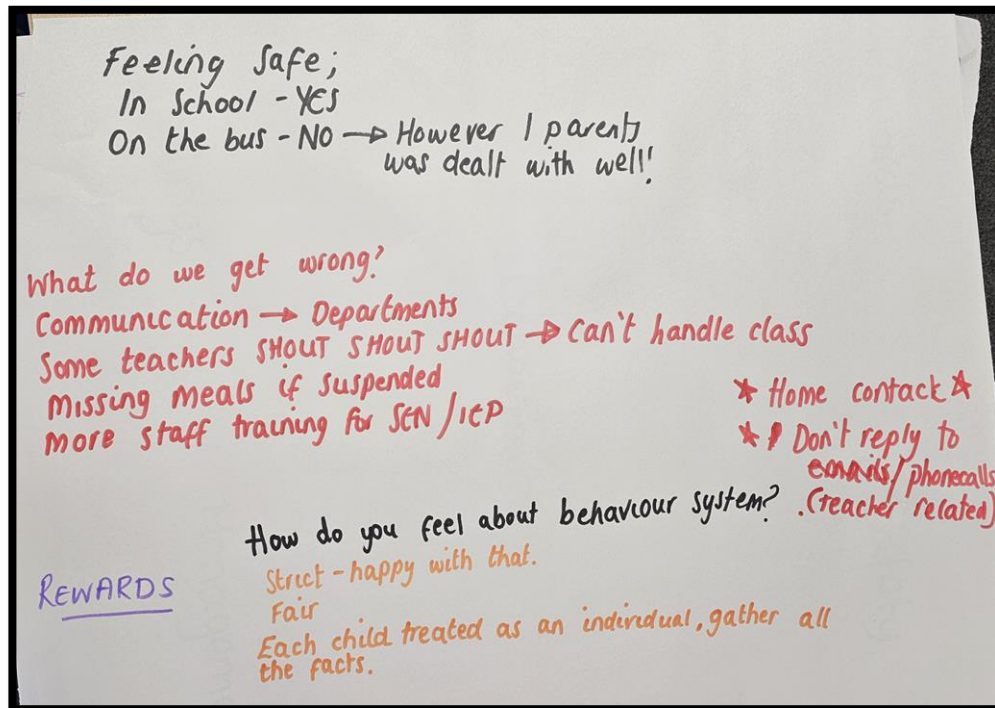 Feeling Safe;
In School - YES
On the bus - NO → However 1 parents
was dealt with well!
What do we get wrong?
Communication → Departments
Some teachers SHOUT SHOUT SHOUT → Can't handle class
Missing meals if suspended
more staff training for SEN/IEP
* Home contack *
* ! Don't reply to
emails/phonecalls
.(teacher related)
How do you feel about behaviour system?
Strict - happy with that.
Fair
Each child treated as an individual, gather all
the facts.
REWARDS